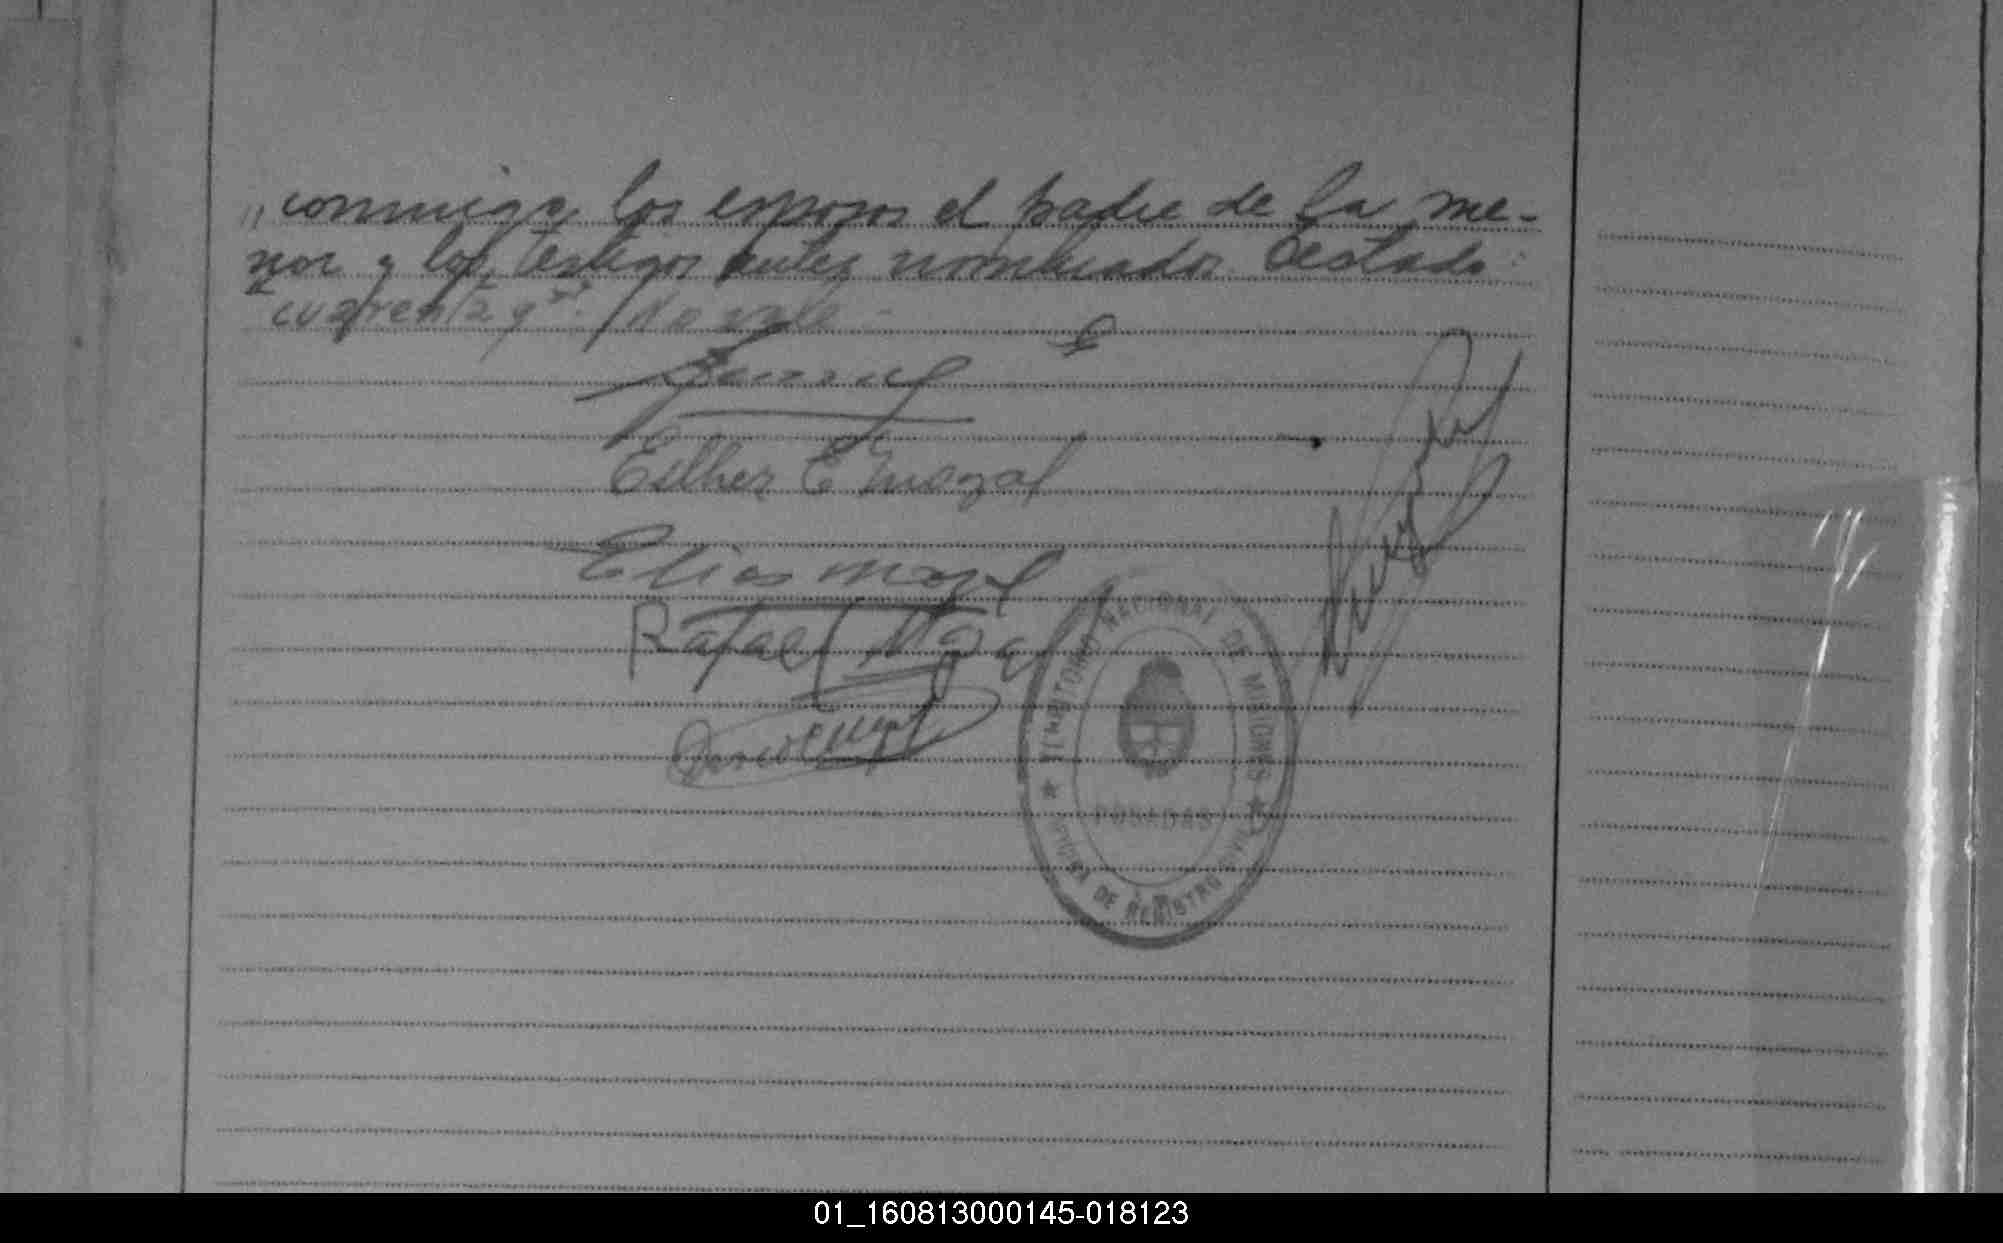 „ conmigo los esposos el padre de la me-
nor y los testigos antes nombrados. Testado:
cuarenta y No vale.-
Esther E Mazal
Elias Mazal
Rafael Mazal
TERRITORIO NACIONAL DE MISIONES
POSADAS
OFICINA DE REGISTRO CIVIL
01_160813000145-018123